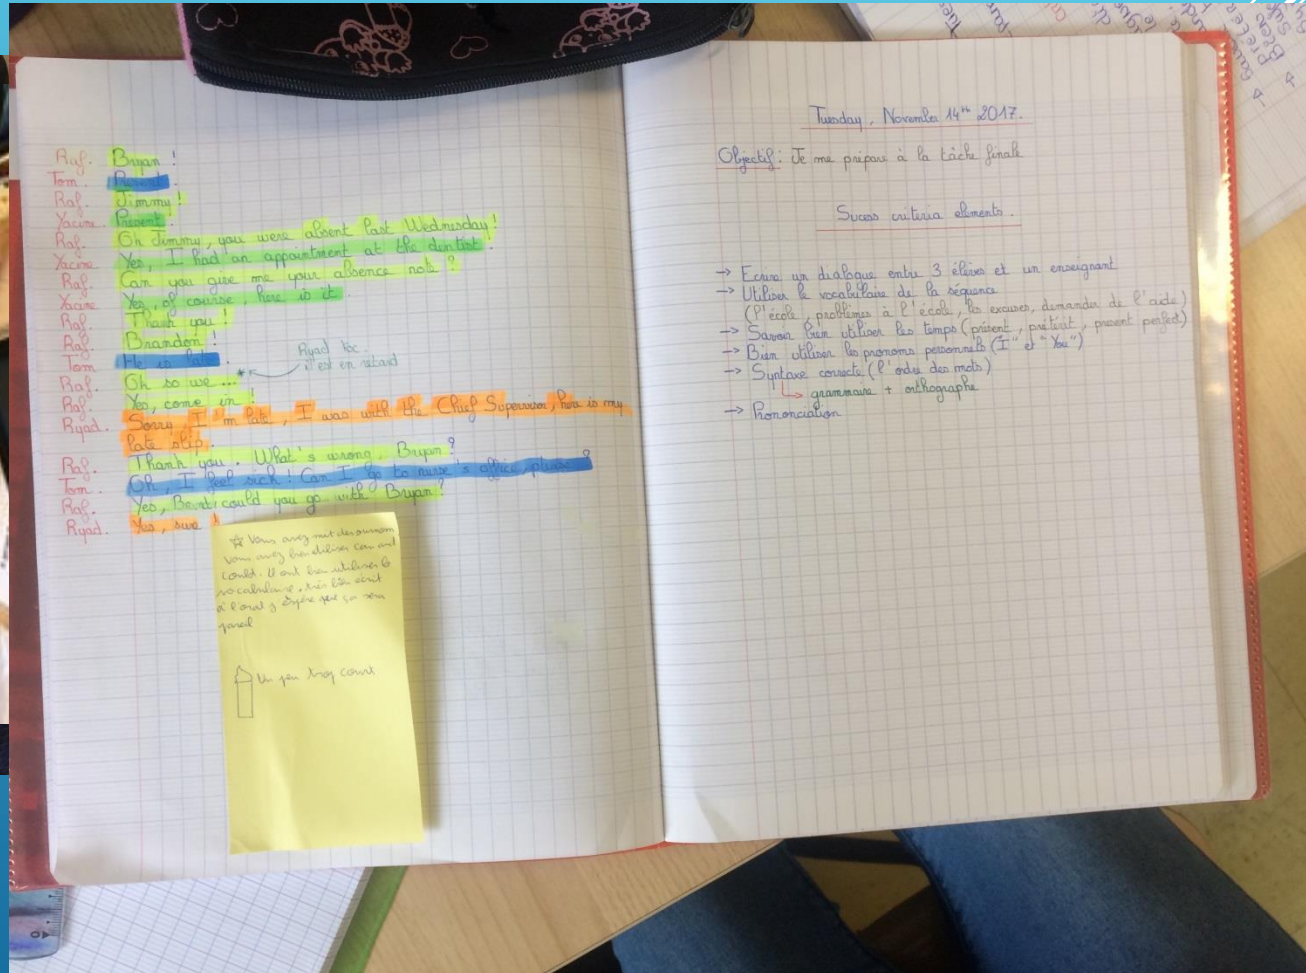 Raf. Bryan !
Tom. Present.
Raf. Jimmy !
Yacine. Present.
Raf. Oh Jimmy, you were absent last Wednesday !
Yacine Yes, I had an appointment at the dentist
Raf. Can you give me your absence note ?
Yacine Yes, of course, here is it.
Raf. Thank you !
Raf. Brandon !
Tom He is late.
Ryad toc.
il est en retard
Raf. Oh so we ... *
Raf. Yes, come in !
Ryad. Sorry I'm late, I was with the Chief Supervisor, here is my
late slip.
Raf. Thank you. What's wrong, Bryan ?
Tom. Oh, I feel sick ! Can I go to nurse's office, please ?
Raf. Yes, could you go with Bryan ?
Ryad. Yes, sure !
☆ Vous avez mit des
Vous avez bien utiliser can and
could. Il ont bien utiliser le
vocabulaire, très bien écrit
à l'oral j'éspère que ça sera
pareil
Un peu trop court
Tuesday, November 14th 2017.
Objectif : Je me prépare à la tâche finale
Sucess criteria elements.
→ Ecrire un dialogue entre 3 élèves et un enseignant
→ Utiliser le vocabulaire de la séquence
(l'école, problèmes à l'école, les excuses, demander de l'aide)
→ Savoir bien utiliser les temps (présent, prétérit, present perfect)
→ Bien utiliser les pronoms personnels ("I" et "You")
→ Syntaxe correcte (l'ordre des mots)
↳ grammaire + orthographe
→ Prononciation